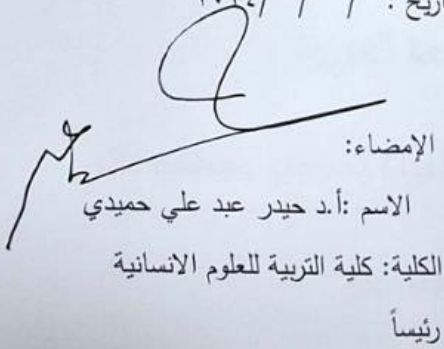 الإمضاء:
الاسم :أ.د حيدر عبد علي حميدي
الكلية: كلية التربية للعلوم الانسانية
رئيساً